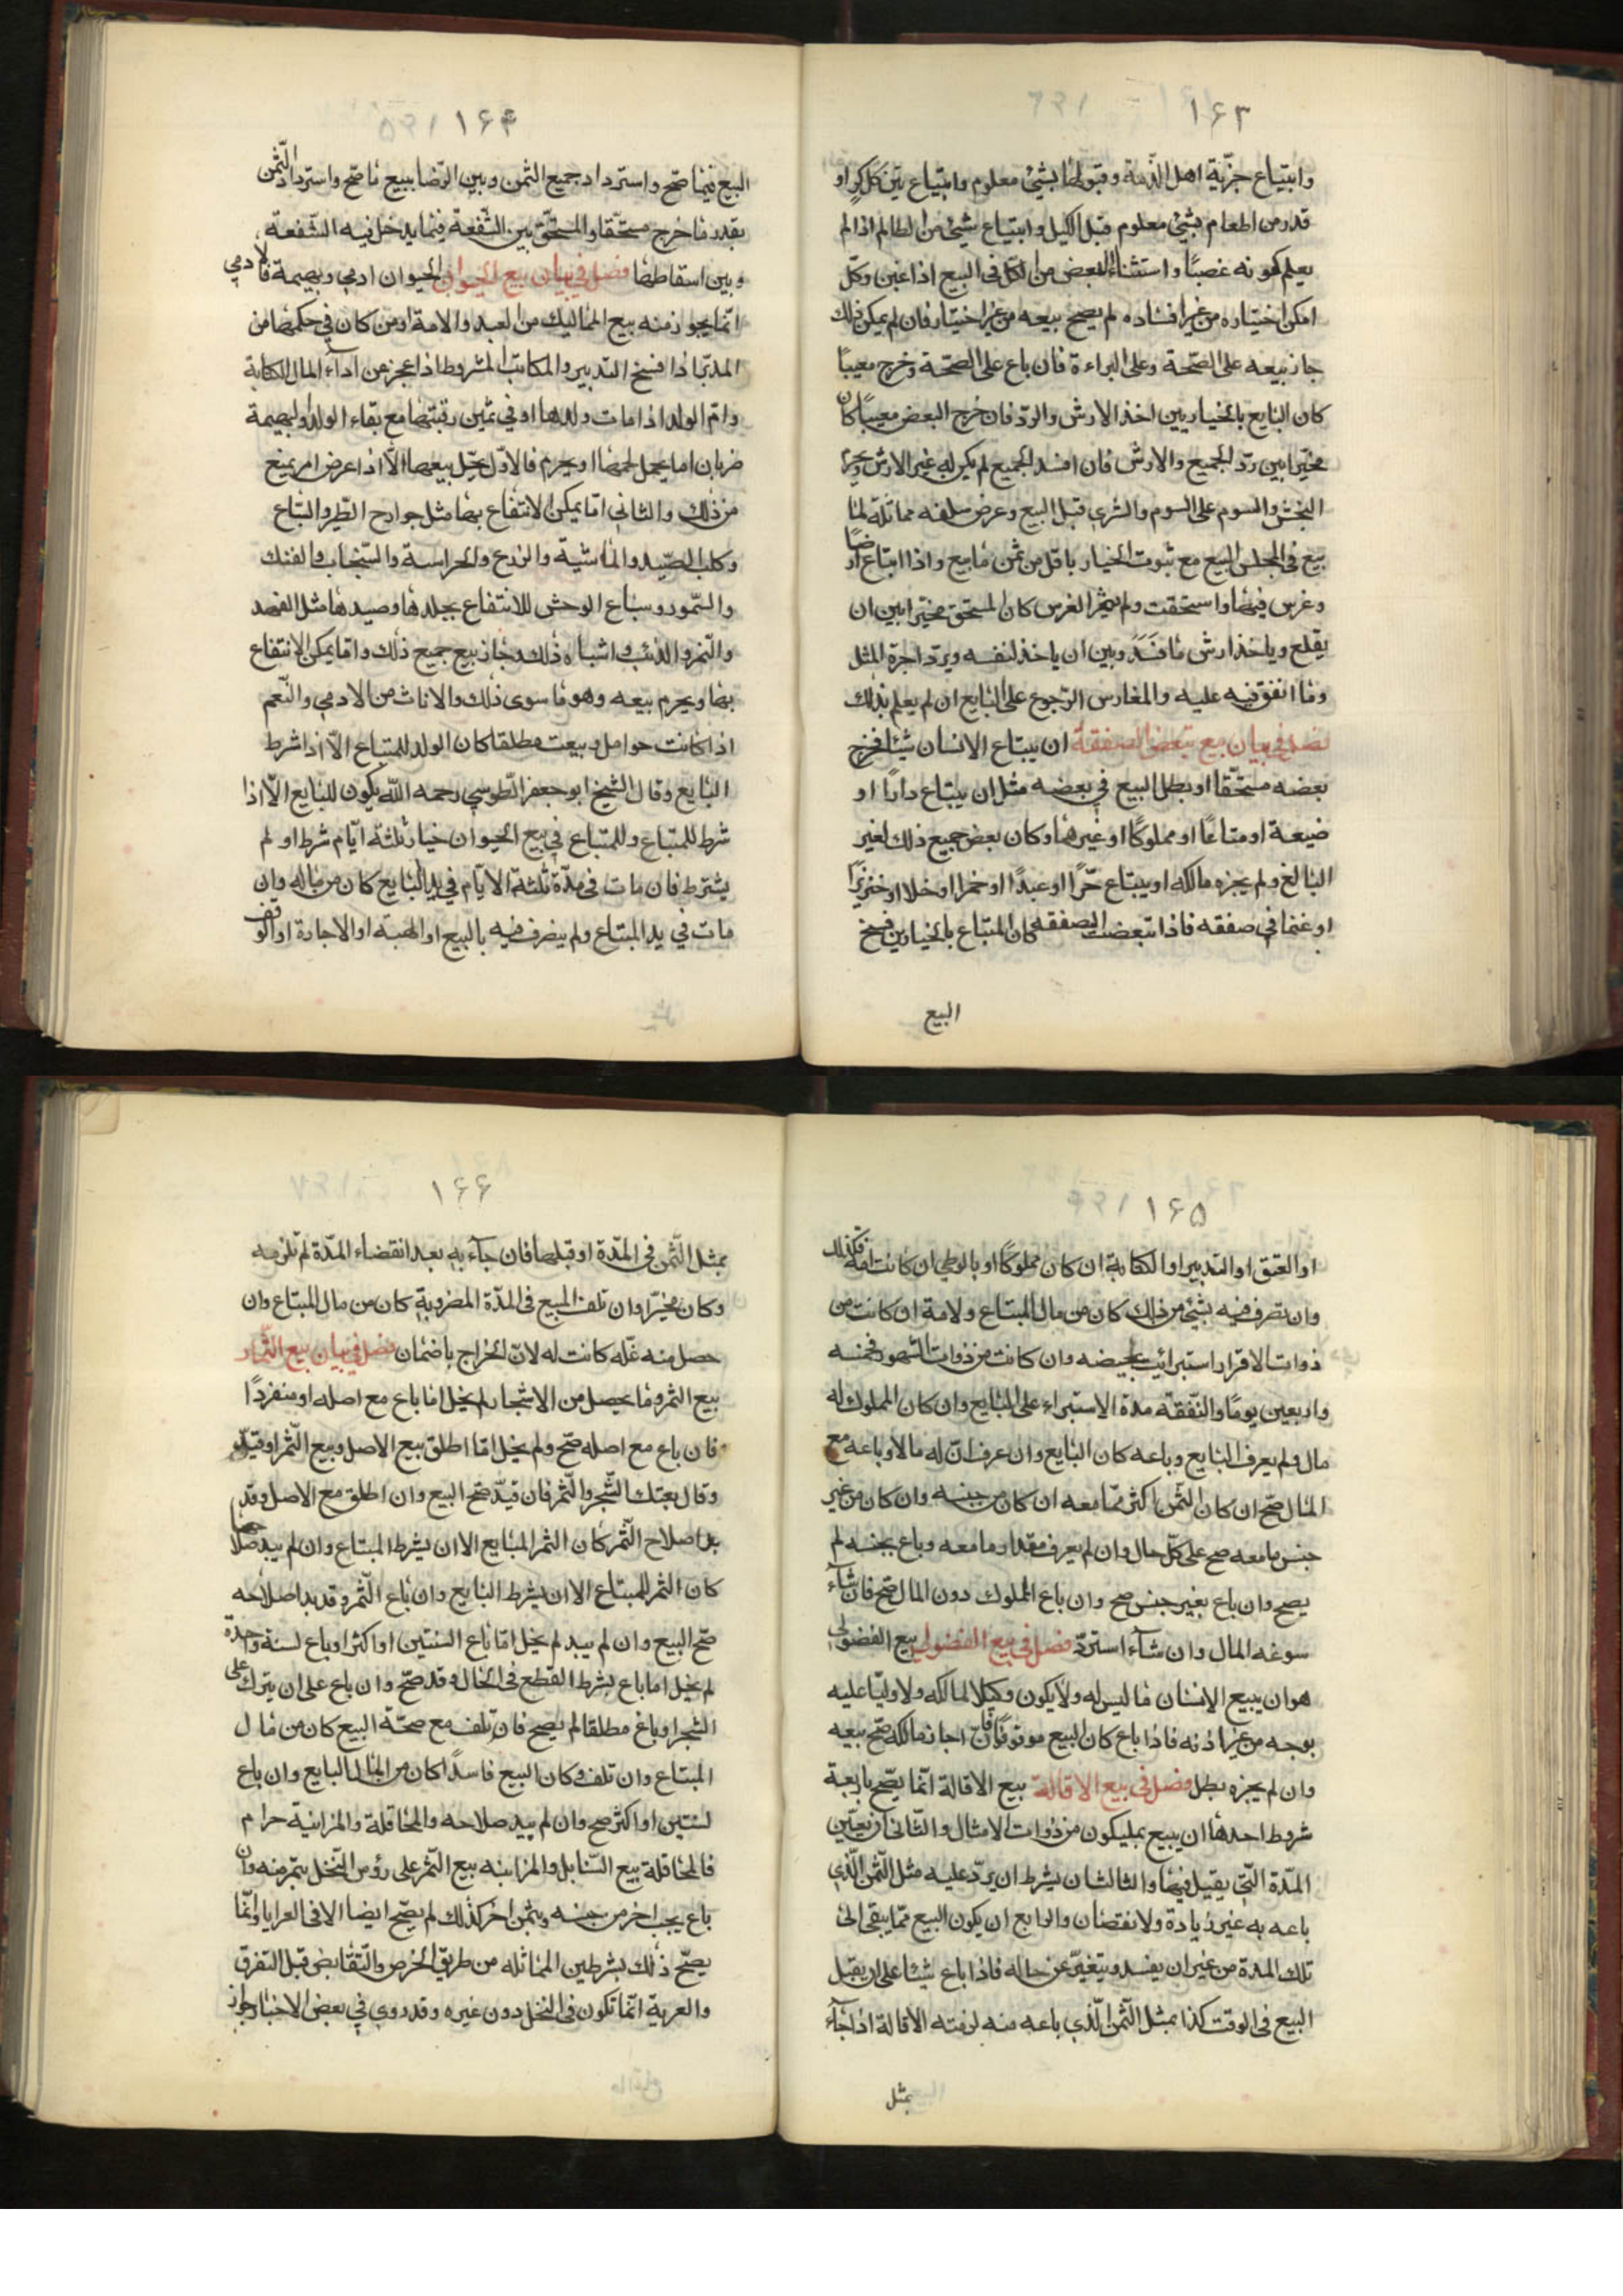 ۱۶۳
وابتیاع جزیة اهل الذمة وقبولها بشیئ معلوم وابتیاع بتن کل کر او
قدر من اطعام بشیئ معلوم قبل الکیل وابتیاع شیئ من الظالم اذا لم
یعلم کونه غصبًا واستثناء البعض من الکل فی البیع اذا عین وکل
امکن اختیاره من غیر افساده لم یصح بیعه من غیر اختیار فان لم یمکن ذلك
جاز بیعه علی الصّحة وعلی البراءة فان باع علی الصّحة وخرج معیبًا
کان البایع بالخیار بین اخذ الارش والردّ فان خرج البعض معیبًا کان
مخیّرا بین ردّ الجمیع والارش فان افسد الجمیع لم یکن له غیر الارش ویحرم
النجش والسوم علی السوم والشری قبل البیع وعرض سلعه مماثلة لما
بیع فی المجلس البیع مع ثبوت الخیار باقل من ثمن ما بیع واذا ابتاع ارضًا
وغرس فیها واستحقت ولم یثمر الغرس کان المستحق مخیّرا بین ان
یقلع ویاخذ ارش ما فَسَدَ وبین ان یاخذ لنفسه ویردّ اجرة المثل
وما انفق فیه علیه والمغارس الرّجوع علی البایع ان لم یعلم بذلك
فصل فی بیان بیع تبعض الصفقة ان یبتاع الانسان شیئا فخرج
بعضه مستحقّا او بطل البیع فی بعضه مثل ان یبتاع دارًا او
ضیعة او متاعًا او مملوکًا او غیرهما وکان بعض جمیع ذلك لغیر
البالغ ولم یجزه مالکه او یبتاع حرًّا او عبدًا او خمرا او خلا او خنزیرًا
او غنما فی صفقه فاذا تبعضت الصفقه کان المبتاع بالخیار بین فسخ
البیع
۱۶۴
البیع فیما صحّ واسترداد جمیع الثمن وبین الرّضا ببیع ما صحّ واسترداد الثّمن
بقدر ما خرج مستحقّا والمستحقّ بین الشّفعة فیما یدخل فیه الشّفعة
وبین اسقاطها فصل فی بیان بیع الحیوان الحیوان ادمی وبهیمة فالادمی
انّما یجوز منه بیع الممالیك من العبد والامة او من کان فی حکمها من
المدبّر اذا فسخ التدبیر والمکاتب المشروط اذا عجز من اداء المال الکتابة
وامّ الولد اذا مات ولدها او فی ثمن رقبتها مع بقاء الولد والبهیمة
ضربان اما یحل لحمها او یحرم فالاوّل یحلّ بیعها الّا اذا عرض امر یمنع
من ذلك والثانی امّا یمکن الانتفاع بها مثل جوارح الطّیر والسّباع
وکلب الصّید والماشیة والزرع والحراسة والسّنجاب والفنك
والسّمور وسباع الوحش للانتفاع بجلدها وصیدها مثل الفهد
والنّمر والذئب واشباه ذلك جاز بیع جمیع ذلك وامّا یمکن الانتفاع
بها ویحرم بیعه وهو ما سوی ذلك والاناث من الادمی والنّعم
اذا کانت حوامل وبیعت مطلقا کان الولد للمبتاع الّا اذا شرط
البایع وقال الشیخ ابو جعفر الطّوسی رحمه الله یکون للبایع الّا اذا
شرط للمبتاع وللمبتاع فی بیع الحیوان خیار ثلثة ایّام شرط او لم
یشترط فان مات فی مدّة ثلثة الایّام فی ید البایع کان من ماله وان
مات فی ید المبتاع ولم یتصرف فیه بالبیع او الهبة او الاجارة او الوقف
۱۶۵
او العتق او التدبیر او الکتابة ان کان مملوکًا او بالوطی ان کانت امة فکذلك
وان تصرف فیه بشیئ من ذلك کان من مال المبتاع ولامة ان کانت من
ذوات الاقرار استبرائت بحیضه وان کانت من ذوات الشهور فخمسه
واربعین یومًا والنّفقة مدة الاستبراء علی البایع وان کان المملوك له
مال ولم یعرف البایع وباعه کان البایع وان عرف انّ له مالا وباعه مع
المال صحّ ان کان الثمن اکثر ممّا معه ان کان من جنسه وان کان من غیر
جنس ما معه صح علی کلّ حال وان لم یعرف مقدار ما معه وباع بجنسه لم
یصح وان باع بغیر جنس صح وان باع المملوك دون المال صح فان شاء
سوغه المال وان شاء استردّ فصل فی بیع الفضولی بیع الفضولی
هو ان یبیع الانسان ما لیس له ولا یکون وکیلا لمالکه ولا ولیّا علیه
بوجه من غیر اذنه فاذا باع کان البیع موقوفًا فان اجاز مالکه صحّ بیعه
وان لم یجزه بطل فصل فی بیع الاقالة بیع الاقالة انّما یصحّ باربعة
شروط احدها ان یبیع بملیکون من ذوات الامثال والثانی ان یعیّن
المدّة الّتی یقیل فیها والثالث ان یشرط ان یردّ علیه مثل الثّمن الّذی
باعه به غیر زیادة ولا نقصان والرابع ان یکون البیع ممّا یبقی الی
تلك المدة من غیر ان یفسد ویتغیّر عن حاله فاذا باع شیئا علی ان یقبل
البیع فی الوقت کذا بمثل الثّمن الّذی باعه منه لزمته الاقالة اذا جاء
بمثل
۱۶۶
بمثل الثّمن فی المدّة او قبلها فان جاء به بعد انقضاء المدّة لم تلزمه
وکان مخیّرًا وان تلف المبیع فی المدّة المضروبة کان من مال المبتاع وان
حصل منه غلّه کانت له لانّ الخراج باضمان فصل فی بیان بیع الثّمار
بیع الثمر وما یحصل من الاشجار لم یخل اما باع مع اصله او منفردًا
فان باع مع اصله صحّ ولم یخل امّا اطلق بیع الاصل وبیع الثّمر او قیّد
وقال بعتك الشّجر والثّمر فان قیّد صحّ البیع وان اطلق مع الاصل وقد
بدا صلاح الثّمر کان الثمر المبایع الا ان یشرط المبتاع وان لم یبد صلاحه
کان الثمر للمبتاع الا ان یشرط البایع وان باع الثّمر وقد بدا صلاحه
صحّ البیع وان لم یبد لم یخل امّا باع السنتین او اکثر او باع لسنة واحدة
لم یخل اما باع بشرط القطع فی الحال وقد صحّ وان باع علی ان یترك علی
الشجر او باع مطلقا لم یصح فان تلف مع صحّة البیع کان من مال
المبتاع وان تلف وکان البیع فاسدًا کان من المال البایع وان باع
لسنتین او اکثر صح وان لم یبد صلاحه والمحاقلة والمزابنة حرام
فالمحاقلة بیع السّنابل والمزابنه بیع الثّمر علی رؤس النّخل بتمر منه وان
باع بحب اخر من جنسه وبتمن اخر کذلك لم یصحّ ایضا الا فی العرایا وانّما
یصحّ ذلك بشرطین المماثله من طریق الخرص والتّقابض قبل التفرق
والعریة انّما تکون فی النخل دون غیره وقد روی فی بعض الاخبار جواز